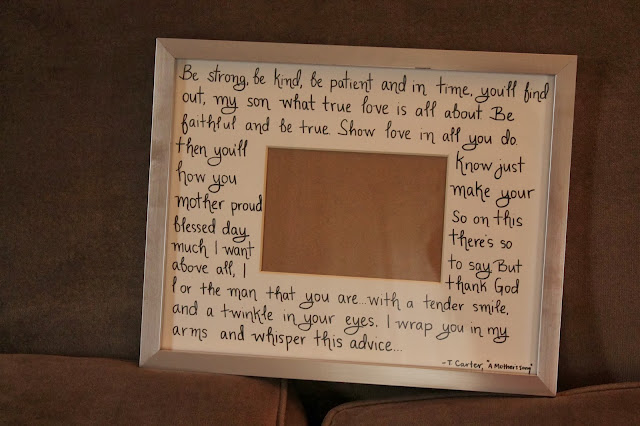 Be strong, be kind, be patient and in time, you'll find
out, my son what true love is all about Be
faithful and be true. Show love in all you do
then you'll know just
how you make your
mother proud So on this
blessed day there's so
much I want to say. But
above all, I thank God
for the man that you are...with a tender smile,
and a twinkle in your eyes. I wrap you in my
arms and whisper this advice...
-T Carter, "A Mother's Song"